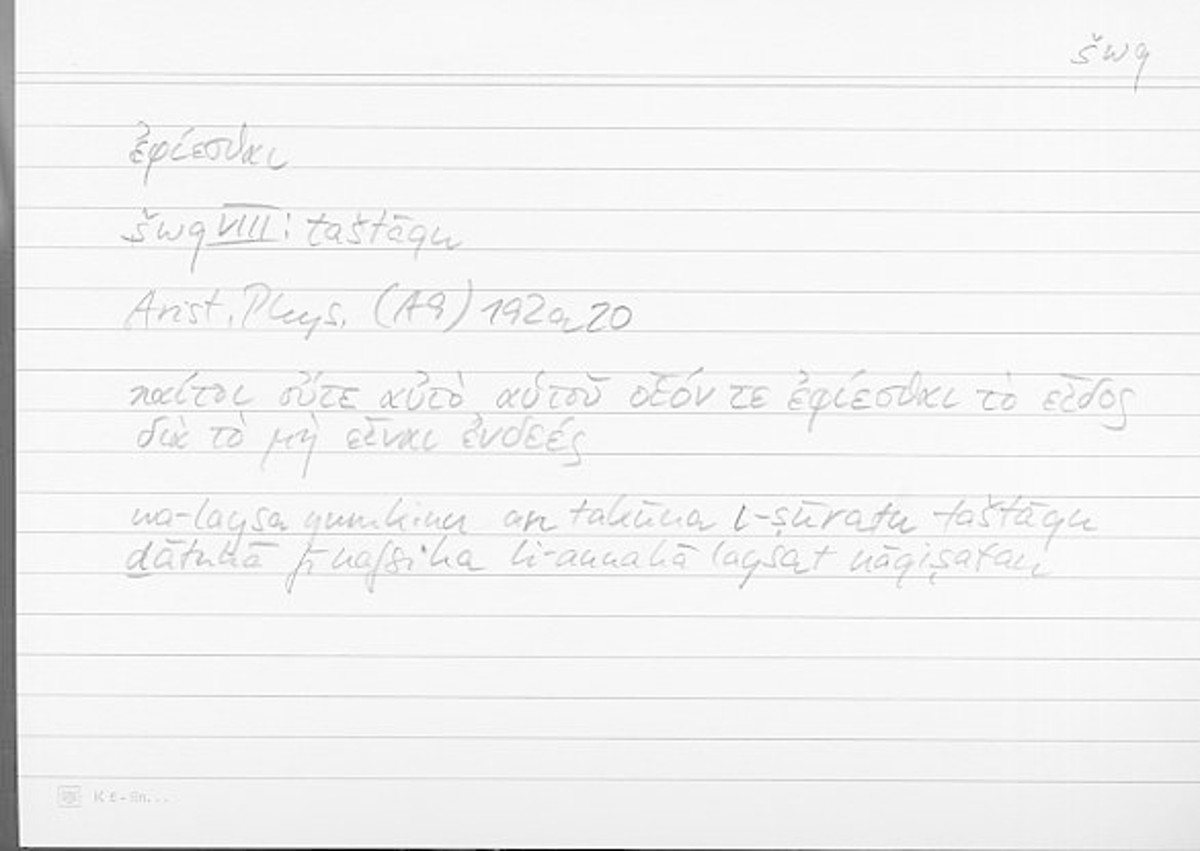 šwq
ἐφίεσθαι
šwq VIII: taštāqu
Arist. Phys. (A9) 192a20
καίτοι οὔτε αὐτὸ αὑτοῦ οἷόν τε ἐφίεσθαι τὸ εἶδος
διὰ τὸ μὴ εἶναι ἐνδεές
wa-laysa yumkinu an takūna l-ṣūratu taštāqu
ḏātuhā fī nafsiha li-annahā laysat nāqiṣatan